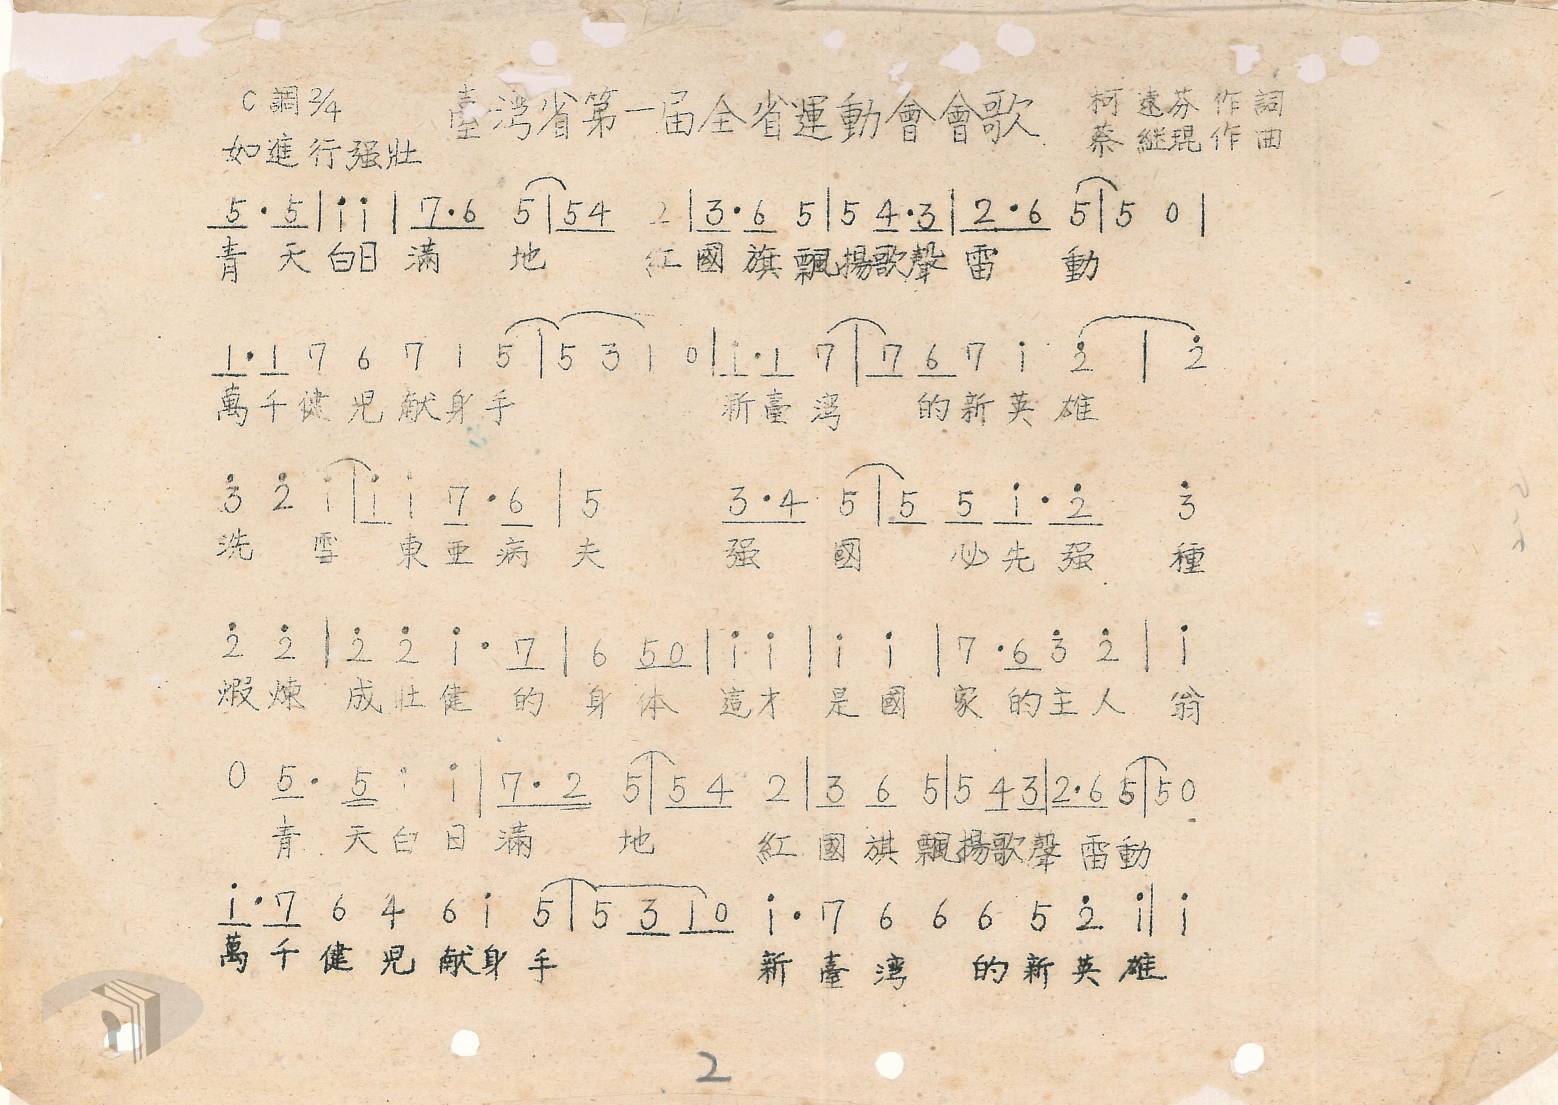 C調2/4 臺灣省第一届全省運動會會歌 柯遠芬作詞
如進行强壯 蔡継琨作曲
5·5|i̇i̇|7·6 5|54 2|3·6 5|5 4·3|2·6 5|5 0|
青天白日滿地 紅國旗飄揚歌聲雷動
1·1 7 6 7 1 5|5 3 1 0|i·1 7|7 6 7 i 2̇ | 2̇
萬千健児献身手 新臺灣 的新英雄
3̇ 2̇ i|i i 7·6|5 3·4 5|5 5 i·2̇ 3̇
洗雪東亜病夫 强國 必先强種
2̇ 2̇|2̇ 2̇ i·7|6 50|i i|i i|7·6 3̇ 2̇|i
煅煉成壯健的身体這才是國家的主人翁
0 5·5 i i|7·2 5|54 2|3 6 5|5 4 3|2·6 5|5 0
青天白日滿地 紅國旗飄揚歌聲雷動
i·7 6 4 6 i 5|5 3 1 0 i·7 6 6 6 5 2̇ i|i
萬千健児献身手 新臺灣 的新英雄
2